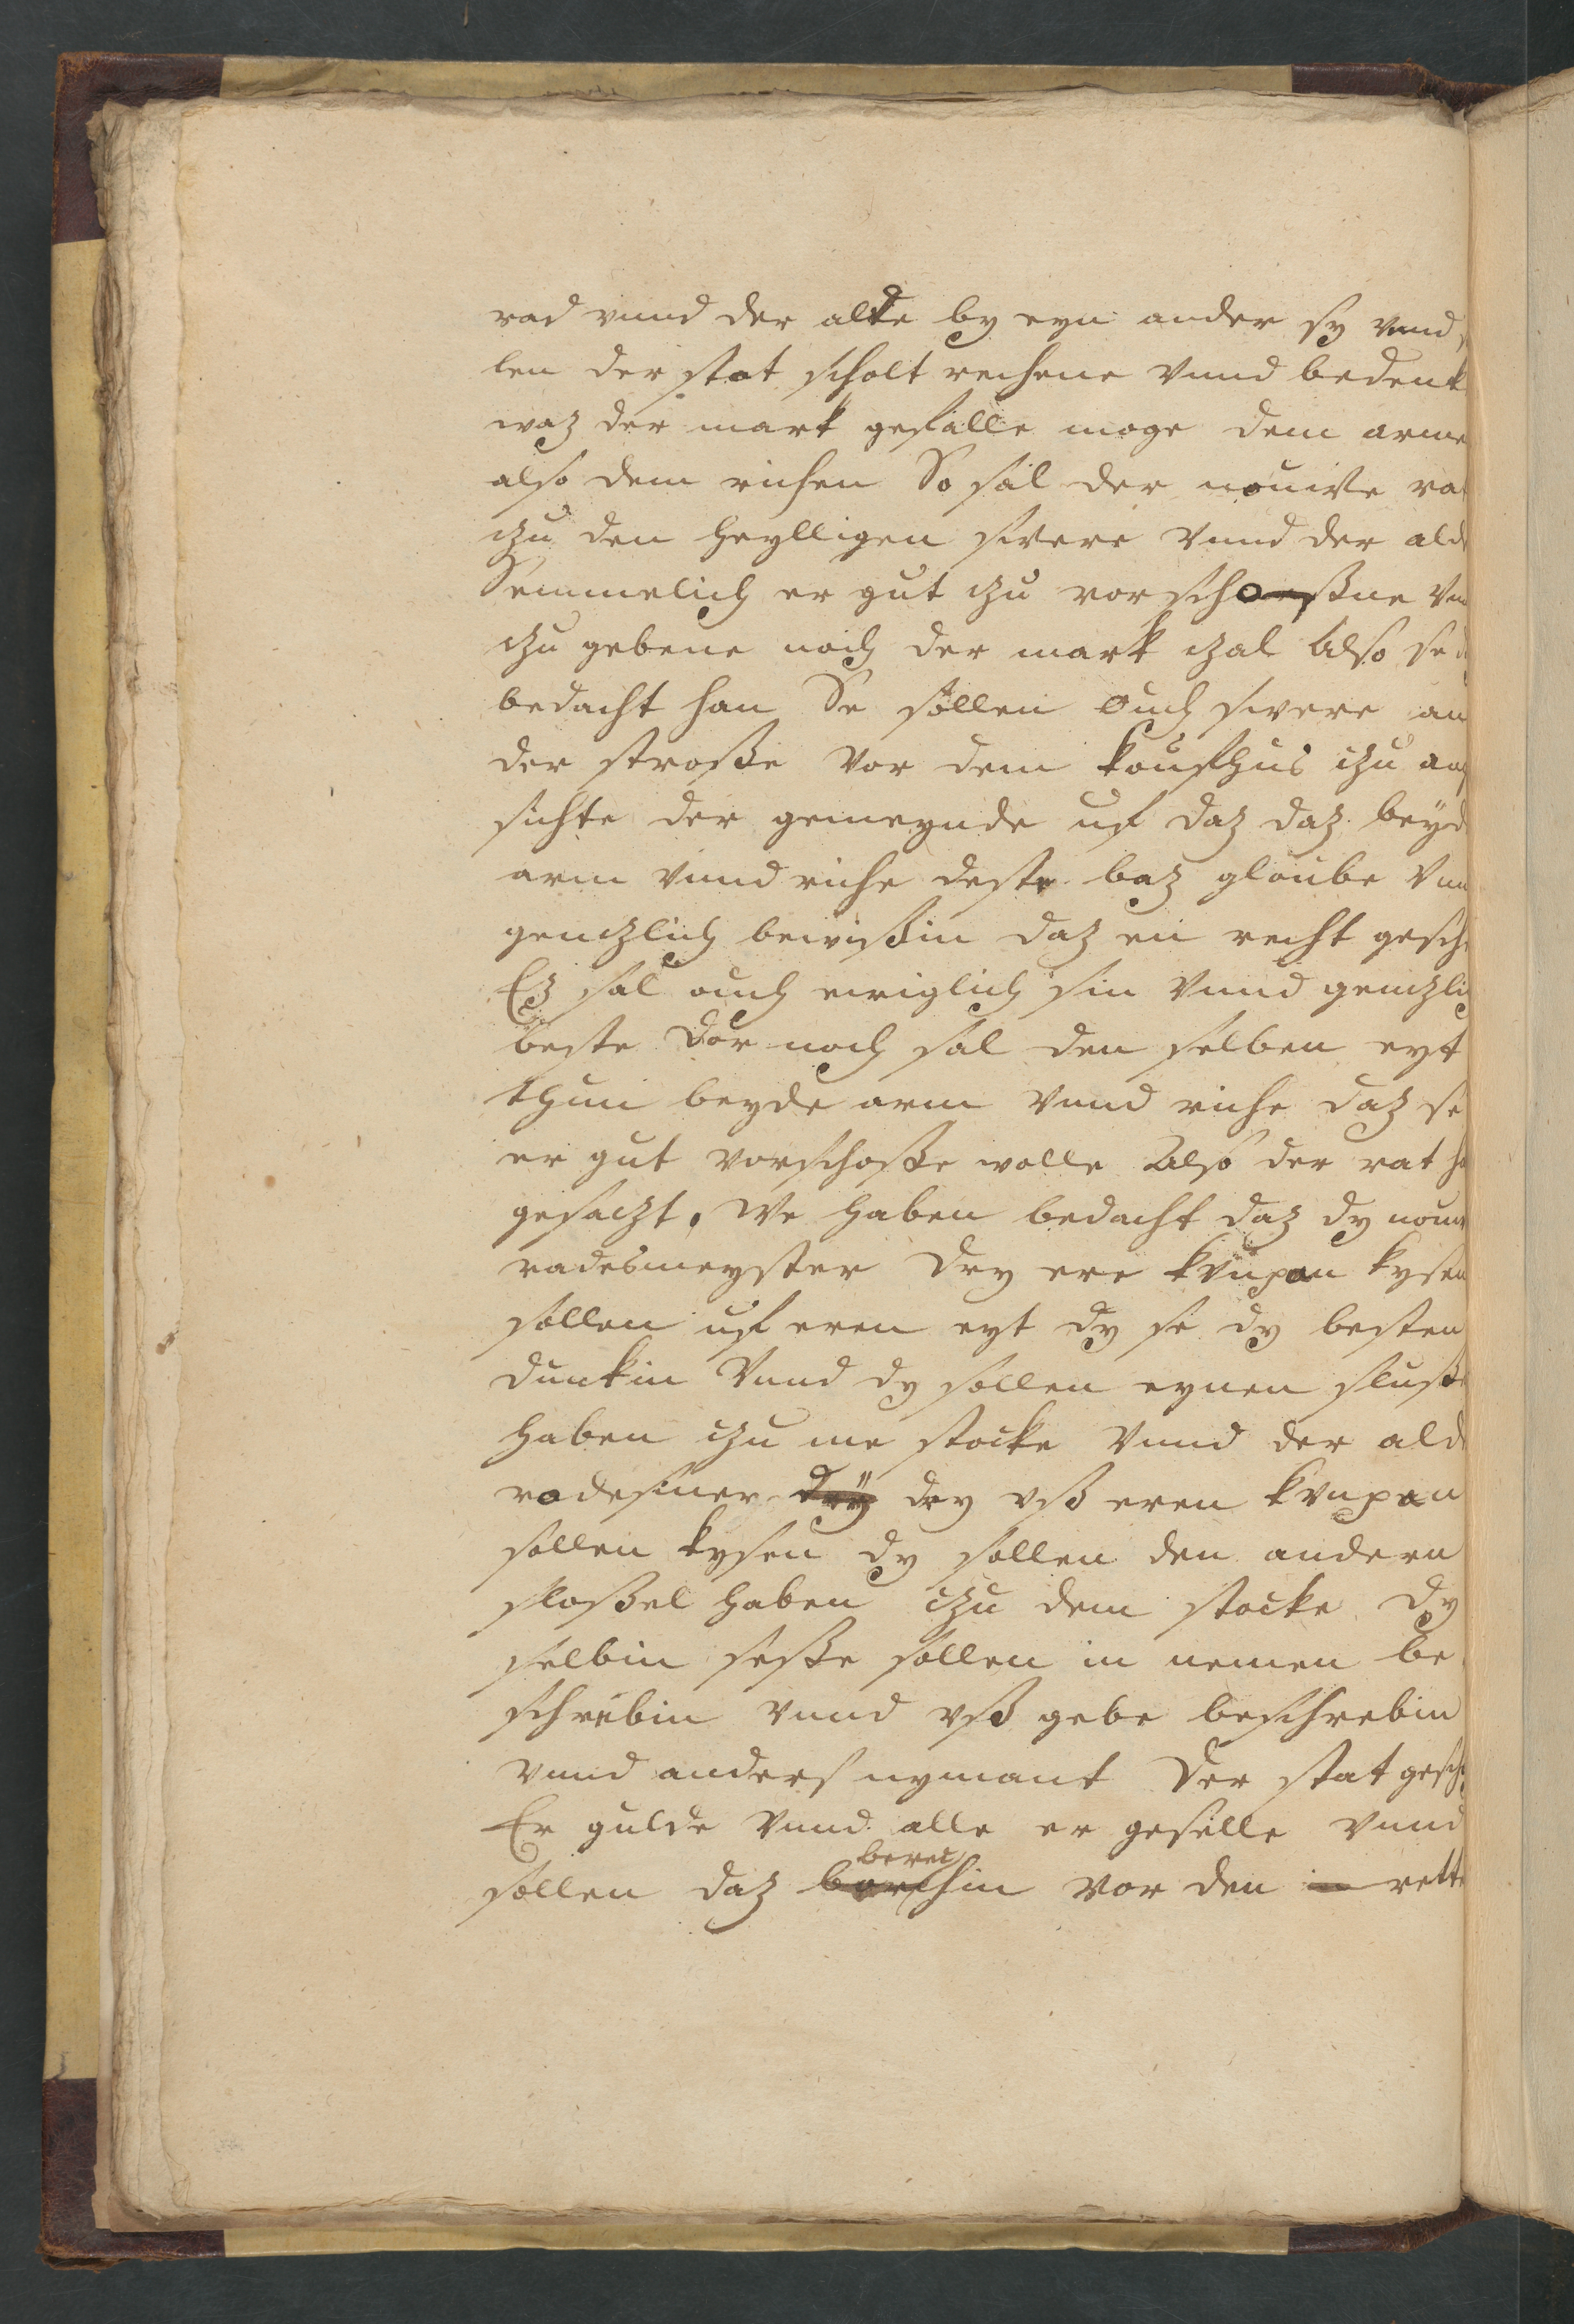 rad vnnd der alde by eyn ander sy vnnd
len der stat scholt rechene vnnd bedenk
waz der mark gefalle moge dem arme
also dem richen So sal der nouwe rat
czu den heylligen swere vnnd der alde
Semmelich er gut czu vorschoßne vnn
czu gebene noch der mark czal Also se
bedacht han Se sollen ouch swere an
der stroße vor dem koufhus czu an
sichte der gemeynde uf daz daz beyd
arm vnnd riche deste baz gloube vnn
genczlich bewißin daz en recht gesche
Ez sal ouch ewiglich sin vnnd genczlich
veste Dor noch sal den selben eyt
thun beyde arm vnnd riche daz se
er gut vorschoße wolle Also der rat ha
gesaczt. We haben bedacht daz dy nouwe
radesmeyster dry ere kvnpan kysen
sollen uf eren eyt dy se dy besten
dunkin Vnnd dy sollen eynen sluße
haben czu me stocke vnnd der alde
radesmer dry vß eren kvnpan
sollen kysen dy sollen den andern
sloßel haben czu dem stocke dy
selbin seße sollen in nemen be
schrebin vnnd vß gebe beschrebin
vnnd anders nymant der stat gescho
Er gulde vnnd alle er gefelle vnnd
sollen daz berechin vor den rette